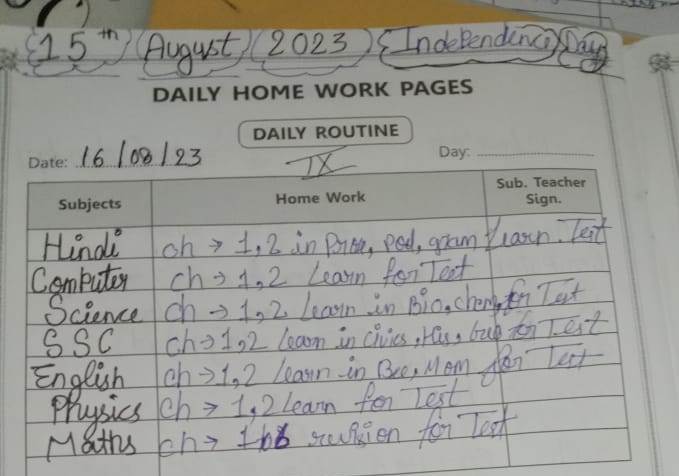 15th August 2023 Independence Day
DAILY HOME WORK PAGES
DAILY ROUTINE
Date: 16/08/23
IX
Day:
Subjects Home Work Sub. Teacher Sign.
Hindi ch → 1,2 in Prose, poe, gram learn. Test
Computer ch → 1,2 Learn for Test
Science ch → 1,2 Learn in Bio, chem, for Test
SSC ch → 1,2 learn in civics, His, for Test
English ch → 1,2 learn in Bee, Mom for Test
Physics ch → 1,2 learn for Test
Maths ch → revision for Test